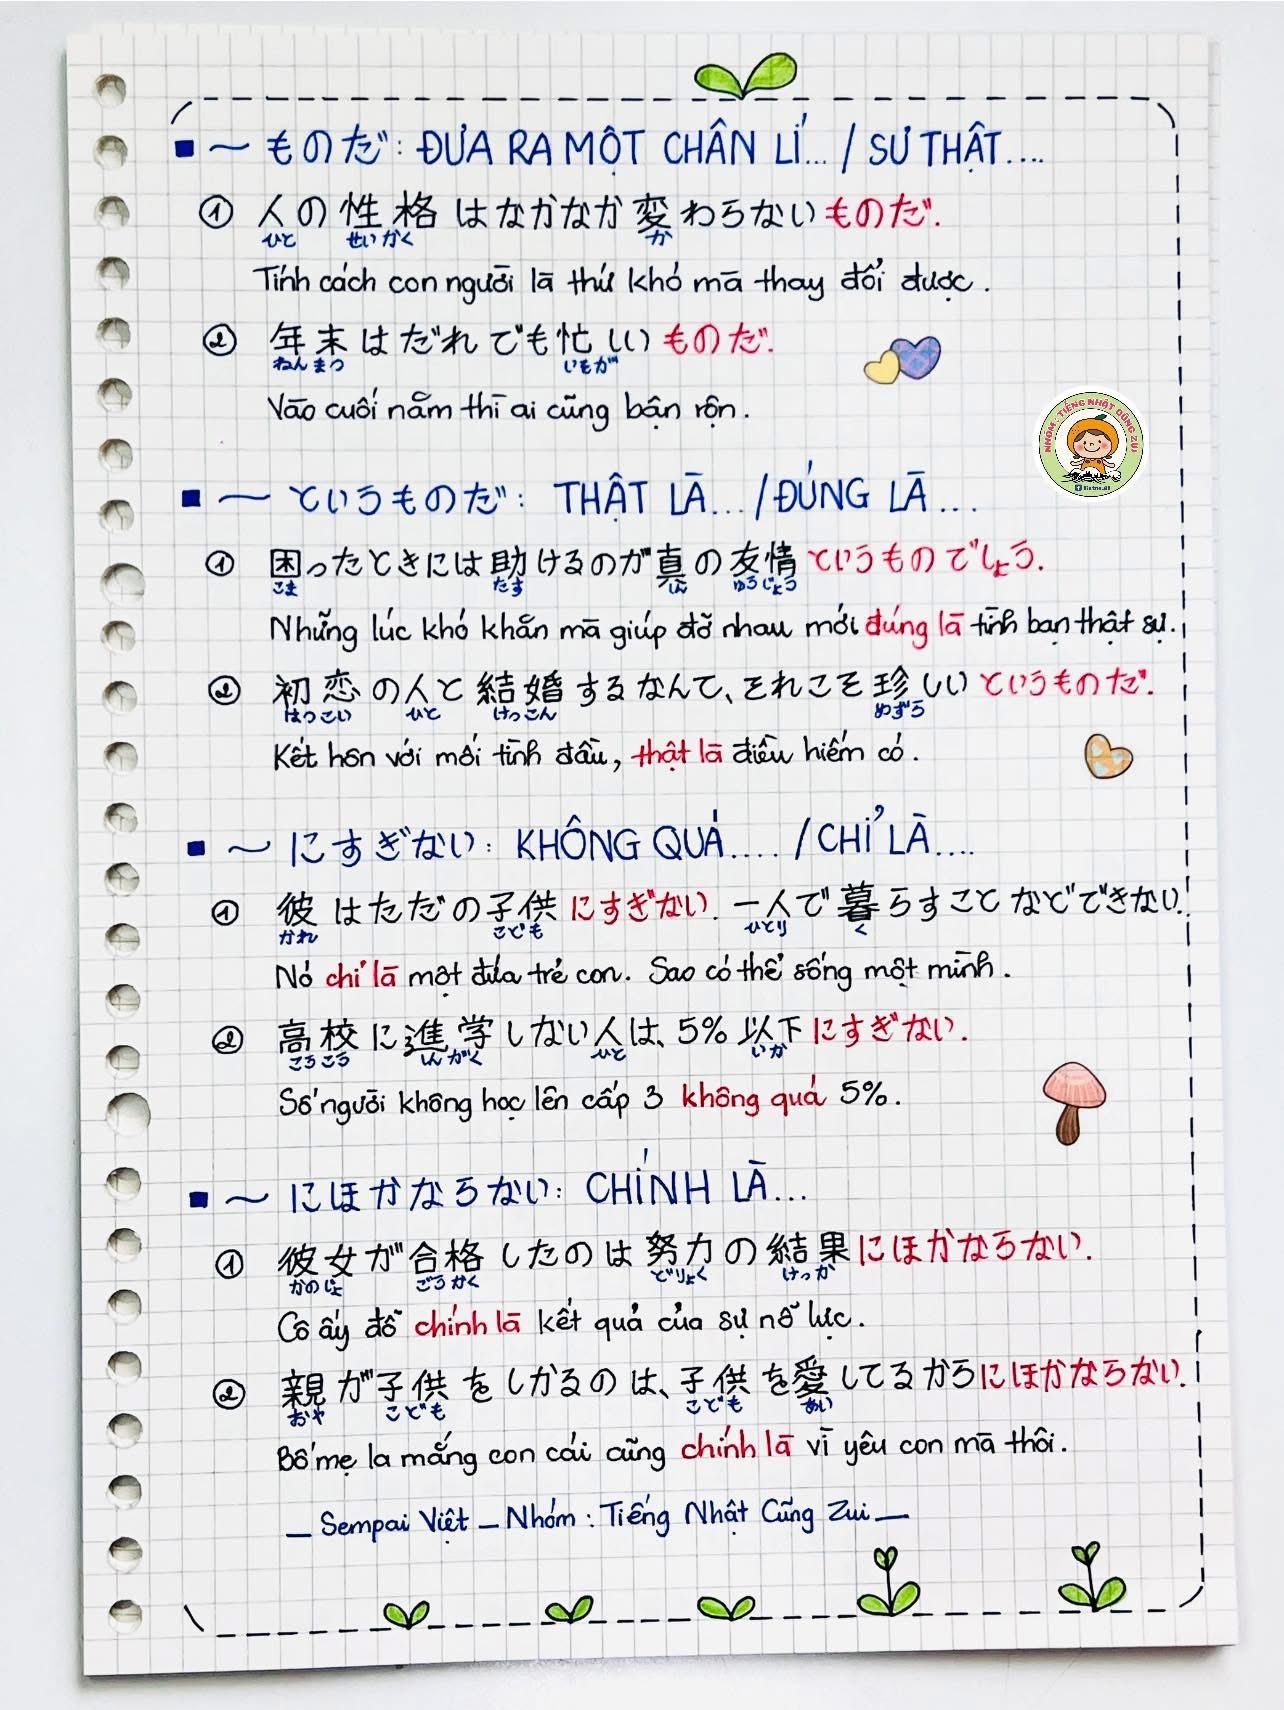 ■ ～ものだ: ĐƯA RA MỘT CHÂN LÍ... / SỰ THẬT....
① 人の性格はなかなか変わらないものだ.
ひと せいかく か
Tính cách con người là thứ khó mà thay đổi được.
② 年末はだれでも忙しいものだ.
ねんまつ いそが
Vào cuối năm thì ai cũng bận rộn.
NHÓM: TIẾNG NHẬT CŨNG ZUI
■ ～というものだ: THẬT LÀ... /ĐÚNG LÀ...
① 困ったときには助けるのが真の友情というものでしょう.
こま たす しん ゆうじょう
Những lúc khó khăn mà giúp đỡ nhau mới đúng là tình bạn thật sự.
② 初恋の人と結婚するなんて、それこそ珍しいというものだ.
はつこい ひと けっこん めずら
Kết hôn với mối tình đầu, thật là điều hiếm có.
■ ～にすぎない: KHÔNG QUÁ.... /CHỈ LÀ....
① 彼はただの子供にすぎない. 一人で暮らすことなどできない.
かれ こども ひとり く
Nó chỉ là một đứa trẻ con. Sao có thể sống một mình.
② 高校に進学しない人は、5%以下にすぎない.
こうこう しんがく ひと いか
Số người không học lên cấp 3 không quá 5%.
■ ～にほかならない: CHÍNH LÀ...
① 彼女が合格したのは努力の結果にほかならない.
かのじょ ごうかく どりょく けっか
Cô ấy đỗ chính là kết quả của sự nỗ lực.
② 親が子供をしかるのは、子供を愛してるからにほかならない.
おや こども こども あい
Bố mẹ la mắng con cái cũng chính là vì yêu con mà thôi.
— Sempai Việt — Nhóm: Tiếng Nhật Cũng Zui —